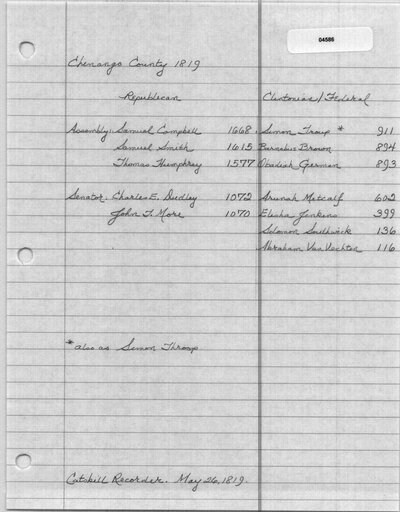 04586
Chenango County 1819
Republican Clintonian/Federal
Assembly: Samuel Campbell 1668 Simon Troup * 911
Samuel Smith 1615 Barnabus Brown 894
Thomas Humphrey 1577 Obadiah German 893
Senator: Charles E. Dudley 1072 Arunah Metcalf 602
John T. More 1070 Elisha Jenkins 399
Solomon Southwick 136
Abraham Van Vechten 116
* also as Simon Throop
Catskill Recorder. May 26, 1819.